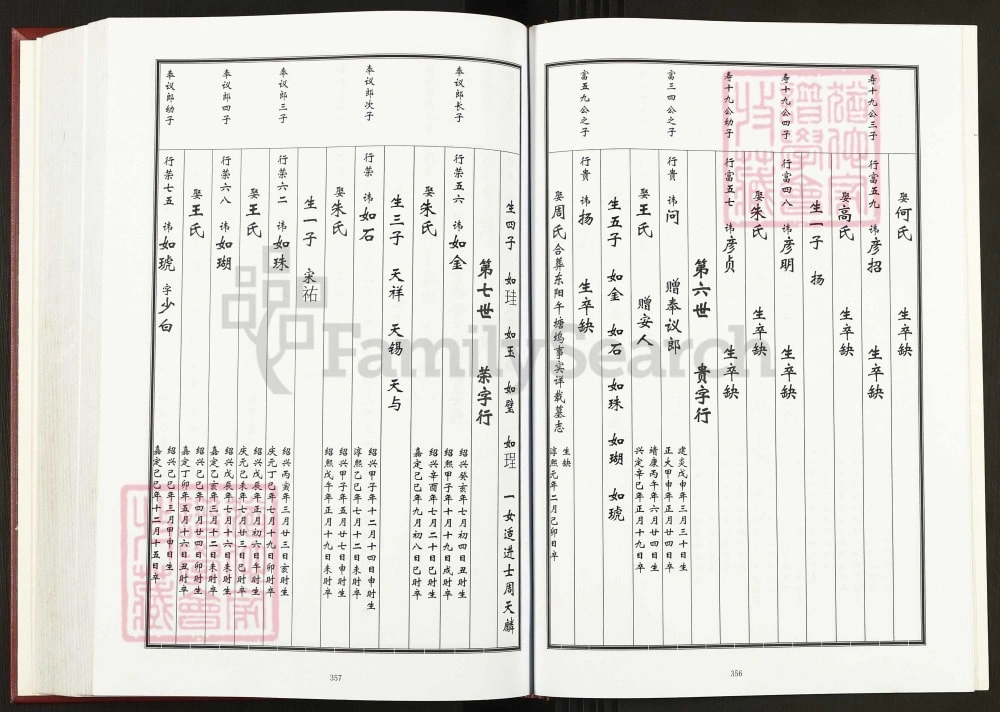 娶何氏 生卒缺
寿十九公三子 行富五九 讳彦招 生卒缺
娶高氏 生卒缺
生一子 扬
寿十九公四子 行富四八 讳彦明 生卒缺
娶朱氏 生卒缺
寿十九公幼子 行富五七 讳彦贞 生卒缺
第六世 贵字行
富三四公之子 行贵 讳问 赠奉议郎 建炎戊申年三月三十日生
正大甲申年正月廿四日卒
娶王氏 赠安人 靖康丙午年六月廿四日生
兴定辛巳年正月十九日卒
生五子 如金 如石 如珠 如瑚 如琥
富五九公之子 行贵 讳扬 生卒缺
娶周氏合葬东阳午塘坞事实详载墓志 生缺
淳熙元年二月己卯日卒
356
生四子 如珪 如玉 如璧 如珵 一女适进士周天麟
第七世 荣字行
奉议郎长子 行荣五六 讳如金 绍兴癸亥年七月初四日丑时生
绍熙甲子年十月十九日戌时卒
娶朱氏 绍兴辛酉年七月二十日巳时生
嘉定己巳年九月初八日巳时卒
生三子 天祥 天锡 天与
奉议郎次子 行荣 讳如石 绍兴甲子年十二月十四日申时生
淳熙乙巳年七月十二日未时卒
娶朱氏 绍兴甲子年五月廿七日申时生
绍熙戊午年正月廿一日未时卒
生一子 宋祐
奉议郎三子 行荣六二 讳如珠 绍兴丙寅年三月廿三日亥时生
庆元丁巳年七月十九日卯时卒
娶王氏 绍兴戊辰年正月初六日午时生
庆元己未年七月廿三日巳时卒
奉议郎四子 行荣六八 讳如瑚 绍兴戊辰年七月十六日未时生
嘉定乙亥年三月十二日未时卒
娶王氏 绍兴己巳年四月廿四日卯时生
嘉定丁卯年五月十六日丑时卒
奉议郎幼子 行荣七五 讳如琥 字少白 绍兴己巳年三月甲申日生
嘉定己巳年十二月十五日卒
357
FamilySearch